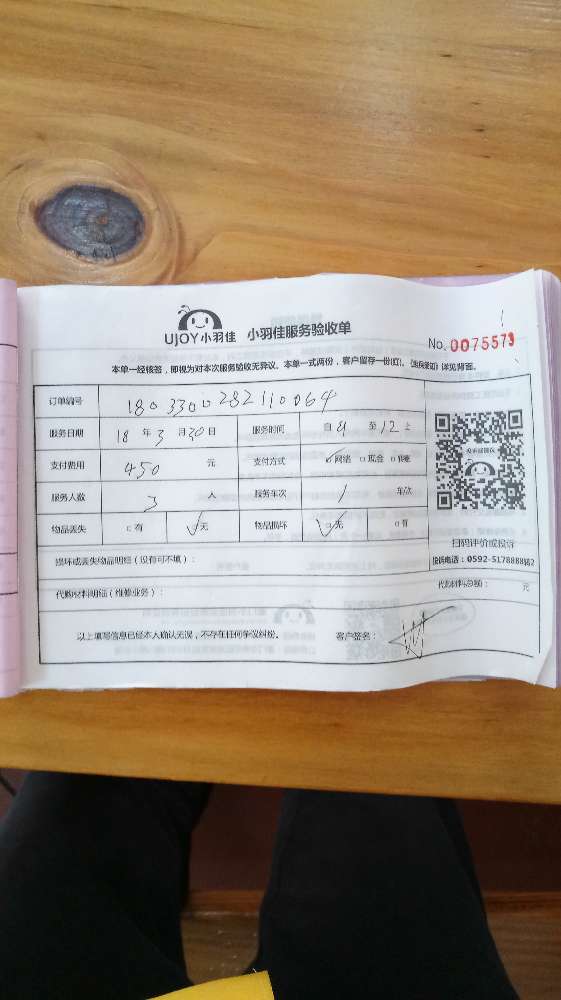 UJOY小羽佳 小羽佳服务验收单
No.0075573
本单一经核签，即视为对本次服务验收无异议。本单一式两份，客户留存一份(红)。《违规条款》详见背面。
订单编号 1803300282110064
服务日期 18 年 3 月 30 日 服务时间 自 9 至 12 止
支付费用 450 元 支付方式 ☑网络 □现金 □转账
服务人数 3 人 服务车次 1 车/次
物品丢失 □有 ☑无 物品损坏 ☑无 □有
扫码评价或投诉
投诉电话：0592-5178888转2
损坏或丢失物品明细（没有可不填）：
代购材料明细（维修业务）： 代购材料总额： 元
以上填写信息已经本人确认无误，不存在任何争议纠纷。 客户签名：